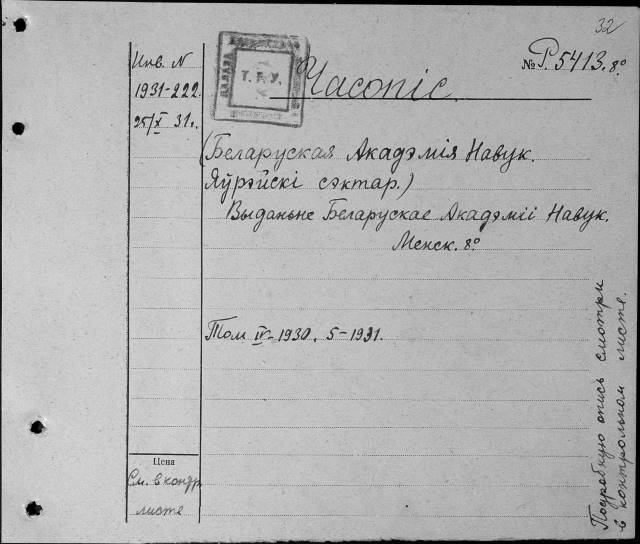 32
Инв. N
1931-222.
25/X 31г.
Т. Г. У.
№ Р.5413. 8º
Часопіс.
(Беларуская Акадэмія Навук.
Яўрэйскі сэктар.)
Выданьне Беларускае Акадэміі Навук.
Менск. 8º
Том IV-1930. 5-1931.
Цена
См. в контр.
листе
Подробную опись смотри
в контрольном листе.